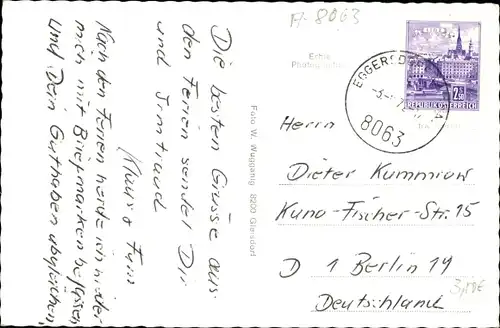 A-8063
Die besten Grüsse aus
den Ferien sendet Dir
und Irmtraud
Klaus
Nach den Ferien werde ich wieder
mich mit Briefmarken befassen
und Dein Guthaben abgleichen
Foto W. Waggamg, 8200 Gleisdorf
Echte
EGGERSDORF
8063
2.50
REPUBLIK ÖSTERREICH
Herrn
Dieter Kummrow
Kuno-Fischer-Str. 15
D 1 Berlin 19
Deutschland